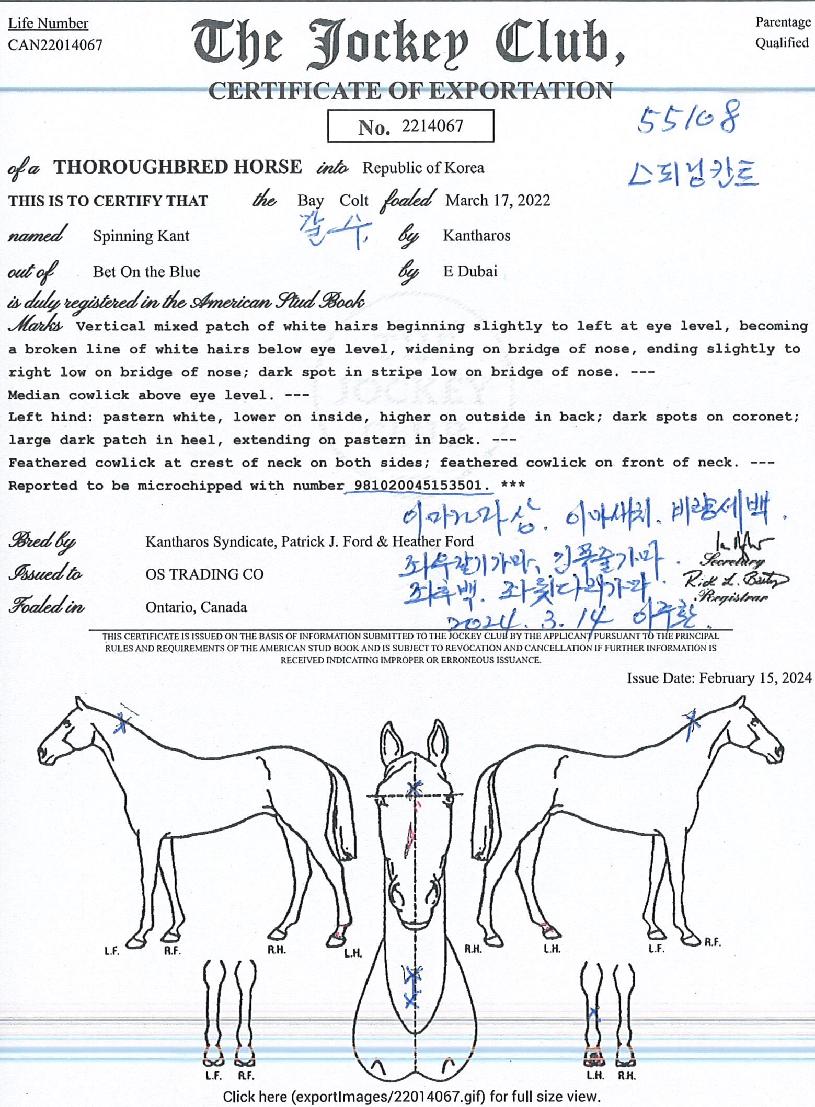 Life Number
CAN22014067
The Jockey Club,
Parentage
Qualified
CERTIFICATE OF EXPORTATION
No. 2214067
55108
of a THOROUGHBRED HORSE into Republic of Korea
스피닝칸트
THIS IS TO CERTIFY THAT the Bay Colt foaled March 17, 2022
갈 수
named Spinning Kant by Kantharos
out of Bet On the Blue by E Dubai
is duly registered in the American Stud Book
Marks Vertical mixed patch of white hairs beginning slightly to left at eye level, becoming
a broken line of white hairs below eye level, widening on bridge of nose, ending slightly to
right low on bridge of nose; dark spot in stripe low on bridge of nose. ---
Median cowlick above eye level. ---
Left hind: pastern white, lower on inside, higher on outside in back; dark spots on coronet;
large dark patch in heel, extending on pastern in back. ---
Feathered cowlick at crest of neck on both sides; feathered cowlick on front of neck. ---
Reported to be microchipped with number 981020045153501. ***
이마가마상. 이마새치. 비량세백.
Bred by Kantharos Syndicate, Patrick J. Ford & Heather Ford
Secretary
좌우갈기가마,
Issued to OS TRADING CO
좌후백. 좌뒷다리가마.
Registrar
Foaled in Ontario, Canada
2024. 3. 14
THIS CERTIFICATE IS ISSUED ON THE BASIS OF INFORMATION SUBMITTED TO THE JOCKEY CLUB BY THE APPLICANT PURSUANT TO THE PRINCIPAL
RULES AND REQUIREMENTS OF THE AMERICAN STUD BOOK AND IS SUBJECT TO REVOCATION AND CANCELLATION IF FURTHER INFORMATION IS
RECEIVED INDICATING IMPROPER OR ERRONEOUS ISSUANCE.
Issue Date: February 15, 2024
L.F. R.F. R.H. L.H. R.H. L.H. L.F. R.F.
L.F. R.F. L.H. R.H.
Click here (exportImages/22014067.gif) for full size view.